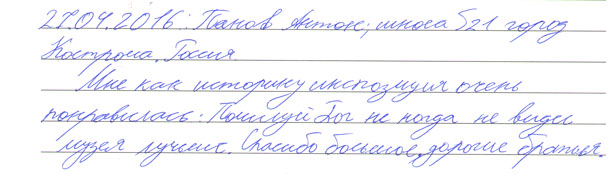 27.04.2016. Панов Антон; школа 521 город
Кострома, Россия.
Мне как историку экспозиция очень
понравилась. Помилуй Бог не когда не видел
музея лучше. Спасибо большое, дорогие братья.